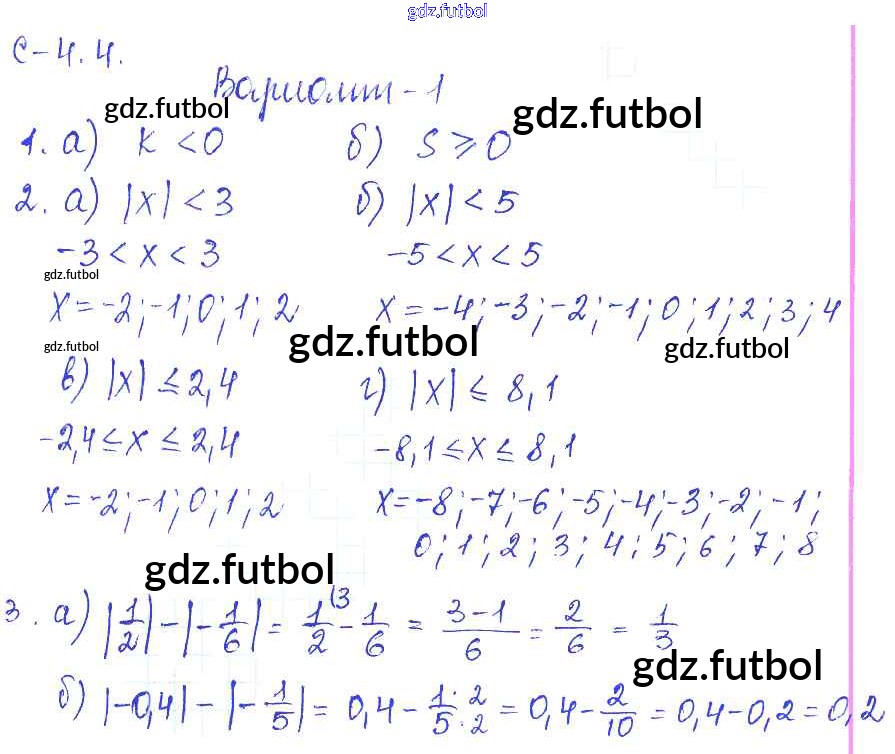 gdz.futbol
С-4.4.
Вариант-1
gdz.futbol gdz.futbol
1. а) k < 0 б) S ⩾ 0
2. а) |x| < 3 б) |x| < 5
-3 < x < 3 -5 < x < 5
gdz.futbol
x = -2; -1; 0; 1; 2 x = -4; -3; -2; -1; 0; 1; 2; 3; 4
gdz.futbol gdz.futbol gdz.futbol
в) |x| ≤ 2,4 г) |x| ≤ 8,1
-2,4 ≤ x ≤ 2,4 -8,1 ≤ x ≤ 8,1
x = -2; -1; 0; 1; 2 x = -8; -7; -6; -5; -4; -3; -2; -1;
0; 1; 2; 3; 4; 5; 6; 7; 8
gdz.futbol
3. а) |1/2| - |-1/6| = 1/2 (3 - 1/6 = (3-1)/6 = 2/6 = 1/3
gdz.futbol
б) |-0,4| - |-1/5| = 0,4 - 1·2/5·2 = 0,4 - 2/10 = 0,4 - 0,2 = 0,2